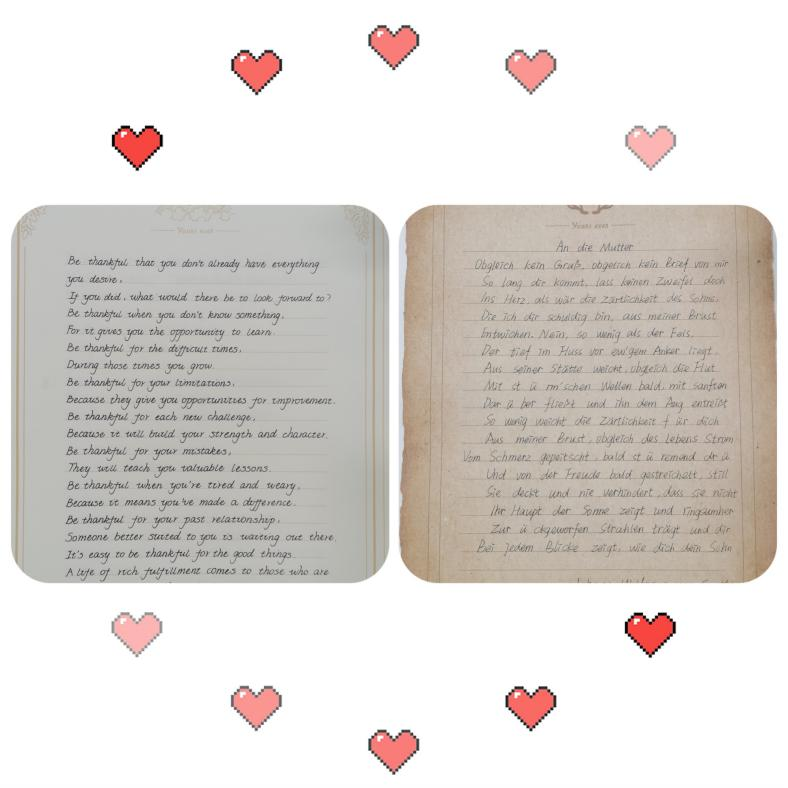 Yours ever
Be thankful that you don't already have everything
you desire,
If you did, what would there be to look forward to?
Be thankful when you don't know something,
For it gives you the opportunity to learn.
Be thankful for the difficult times,
During those times you grow.
Be thankful for your limitations,
Because they give you opportunities for improvement.
Be thankful for each new challenge,
Because it will build your strength and character.
Be thankful for your mistakes,
They will teach you valuable lessons.
Be thankful when you're tired and weary,
Because it means you've made a difference.
Be thankful for your past relationship,
Someone better suited to you is waiting out there.
It's easy to be thankful for the good things.
A life of rich fulfillment comes to those who are
Yours ever
An die Mutter
Obgleich kein Gruß, obgleich kein Brief von mir
So lang dir kommt, lass keinen Zweifel doch
Ins Herz, als wär die Zärtlichkeit des Sohns,
Die ich dir schuldig bin, aus meiner Brust
Entwichen. Nein, so wenig als der Fels,
Der tief im Fluss vor ew'gem Anker liegt,
Aus seiner Stätte weicht, obgleich die Flut
Mit st ü rm'schen Wellen bald, mit sanften
Dar ü ber fließt und ihn dem Aug entreißt
So wenig weicht die Zärtlichkeit f ür dich
Aus meiner Brust, obgleich des Lebens Strom
Vom Schmerz gepeitscht, bald st ü rmend dr ü
Und von der Freude bald gestreichelt, still
Sie deckt und nie verhindert, dass sie nicht
Ihr Haupt der Sonne zeigt und ringsumher
Zur ü ckgeworfen Strahlen trägt und dir
Bei jedem Blicke zeigt, wie dich dein Sohn